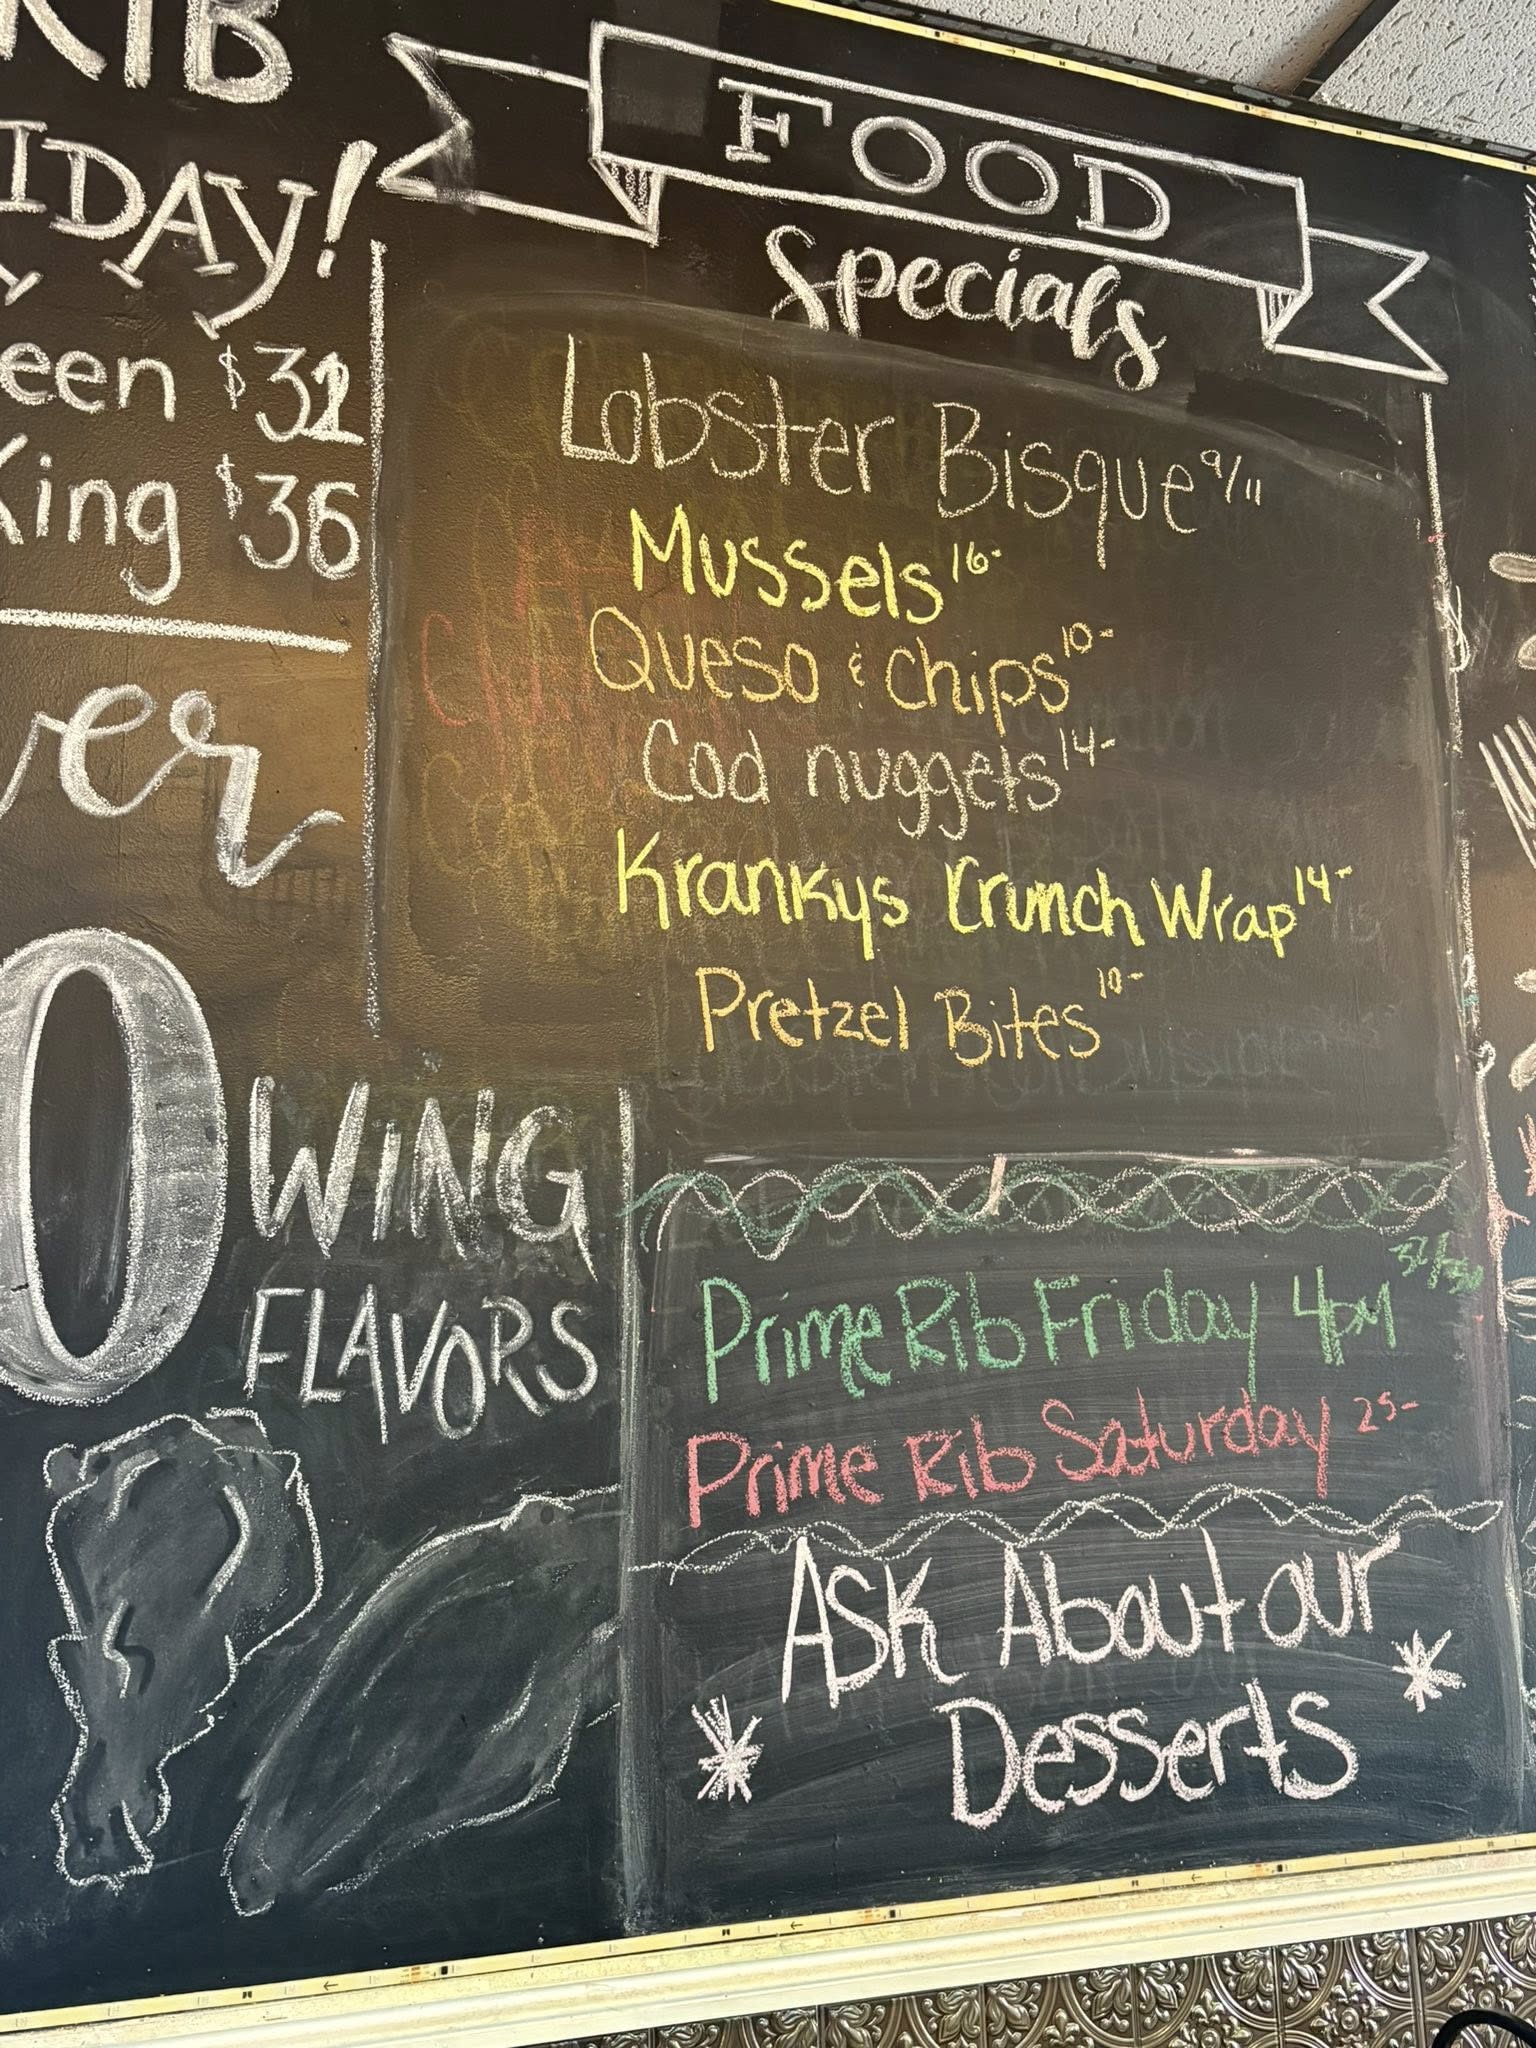 RIB
IDAY!
een $32
King $36
er
0 WING
FLAVORS
FOOD
Specials
Lobster Bisque 9/11
Mussels 16-
Queso & Chips 10-
Cod nuggets 14-
Krankys Crunch Wrap 14-
Pretzel Bites 10-
Prime Rib Friday 4pm 32/36
Prime Rib Saturday 25-
Ask About our
* Desserts *